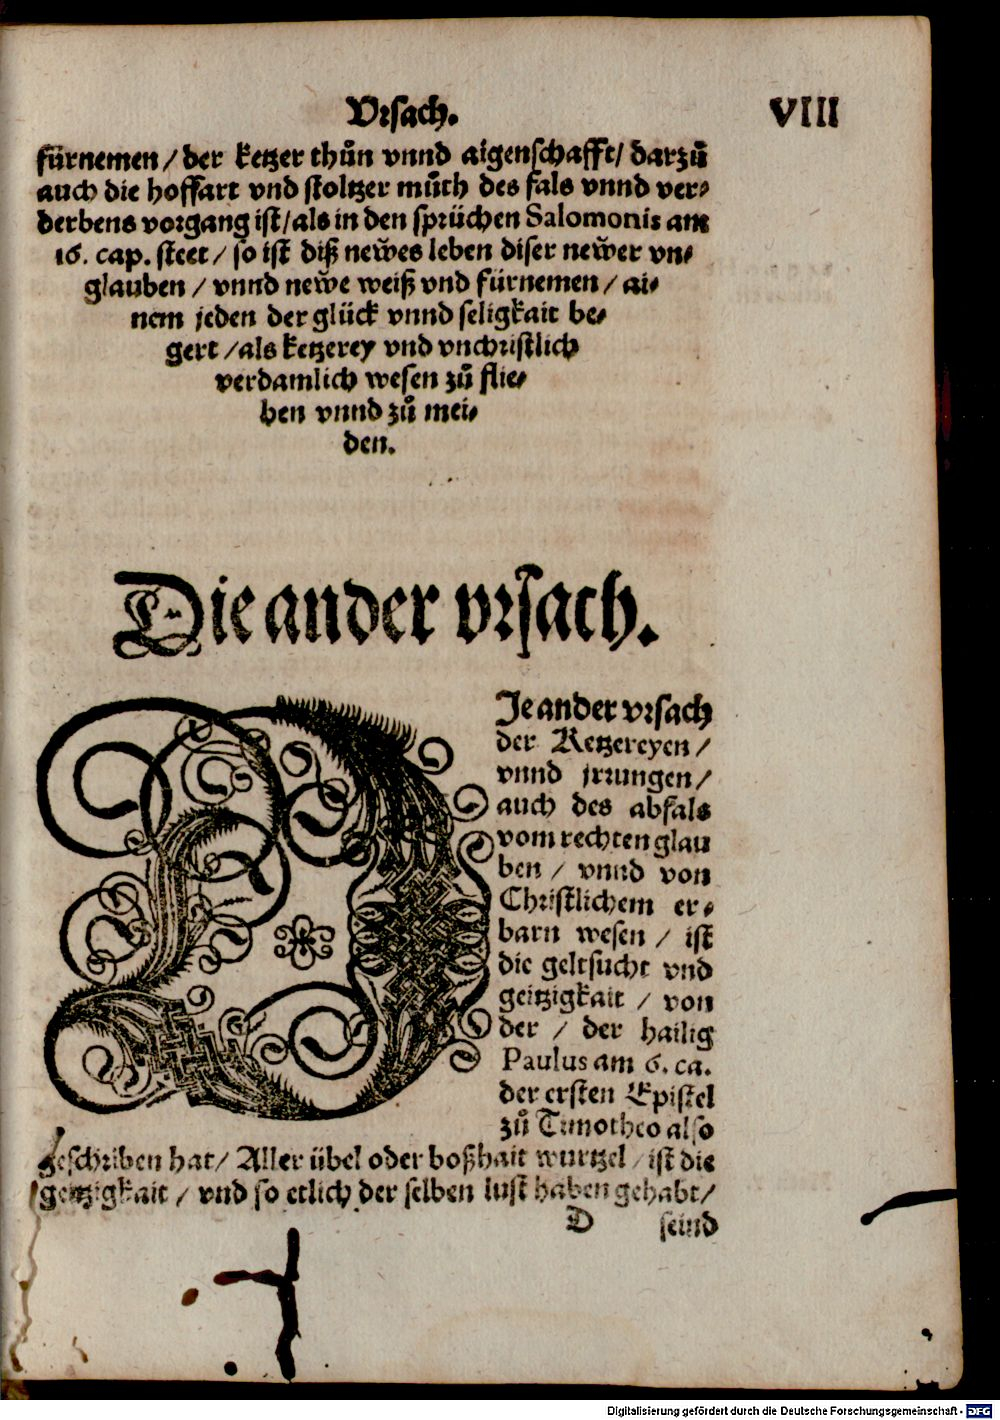 Vrsach. VIII
fürnemen / der ketzer thůn vnnd aigenschafft / darzů
auch die hoffart vnd stoltzer můth des fals vnnd ver⸗
derbens vorgang ist / als in den sprüchen Salomonis am
16. cap. steet / so ist diß newes leben diser newer vn⸗
glauben / vnnd newe weiß vnd fürnemen / ai⸗
nem jeden der glück vnnd seligkait be⸗
gert / als ketzerey vnd vnchristlich
verdamlich wesen zů flie⸗
hen vnnd zů mei⸗
den.
Die ander vrsach.
DIe ander vrsach
der Ketzereyen /
vnnd jrrungen /
auch des abfals
vom rechten glau
ben / vnnd von
Christlichem er⸗
barn wesen / ist
die geltsucht vnd
geitzigkait / von
der / der hailig
Paulus am 6. ca.
der ersten Epistel
zů Timotheo also
geschriben hat / Aller übel oder boßhait wurtzel / ist die
geitzigkait / vnd so etlich der selben lust haben gehabt /
D seind
Digitalisierung gefördert durch die Deutsche Forschungsgemeinschaft - DFG